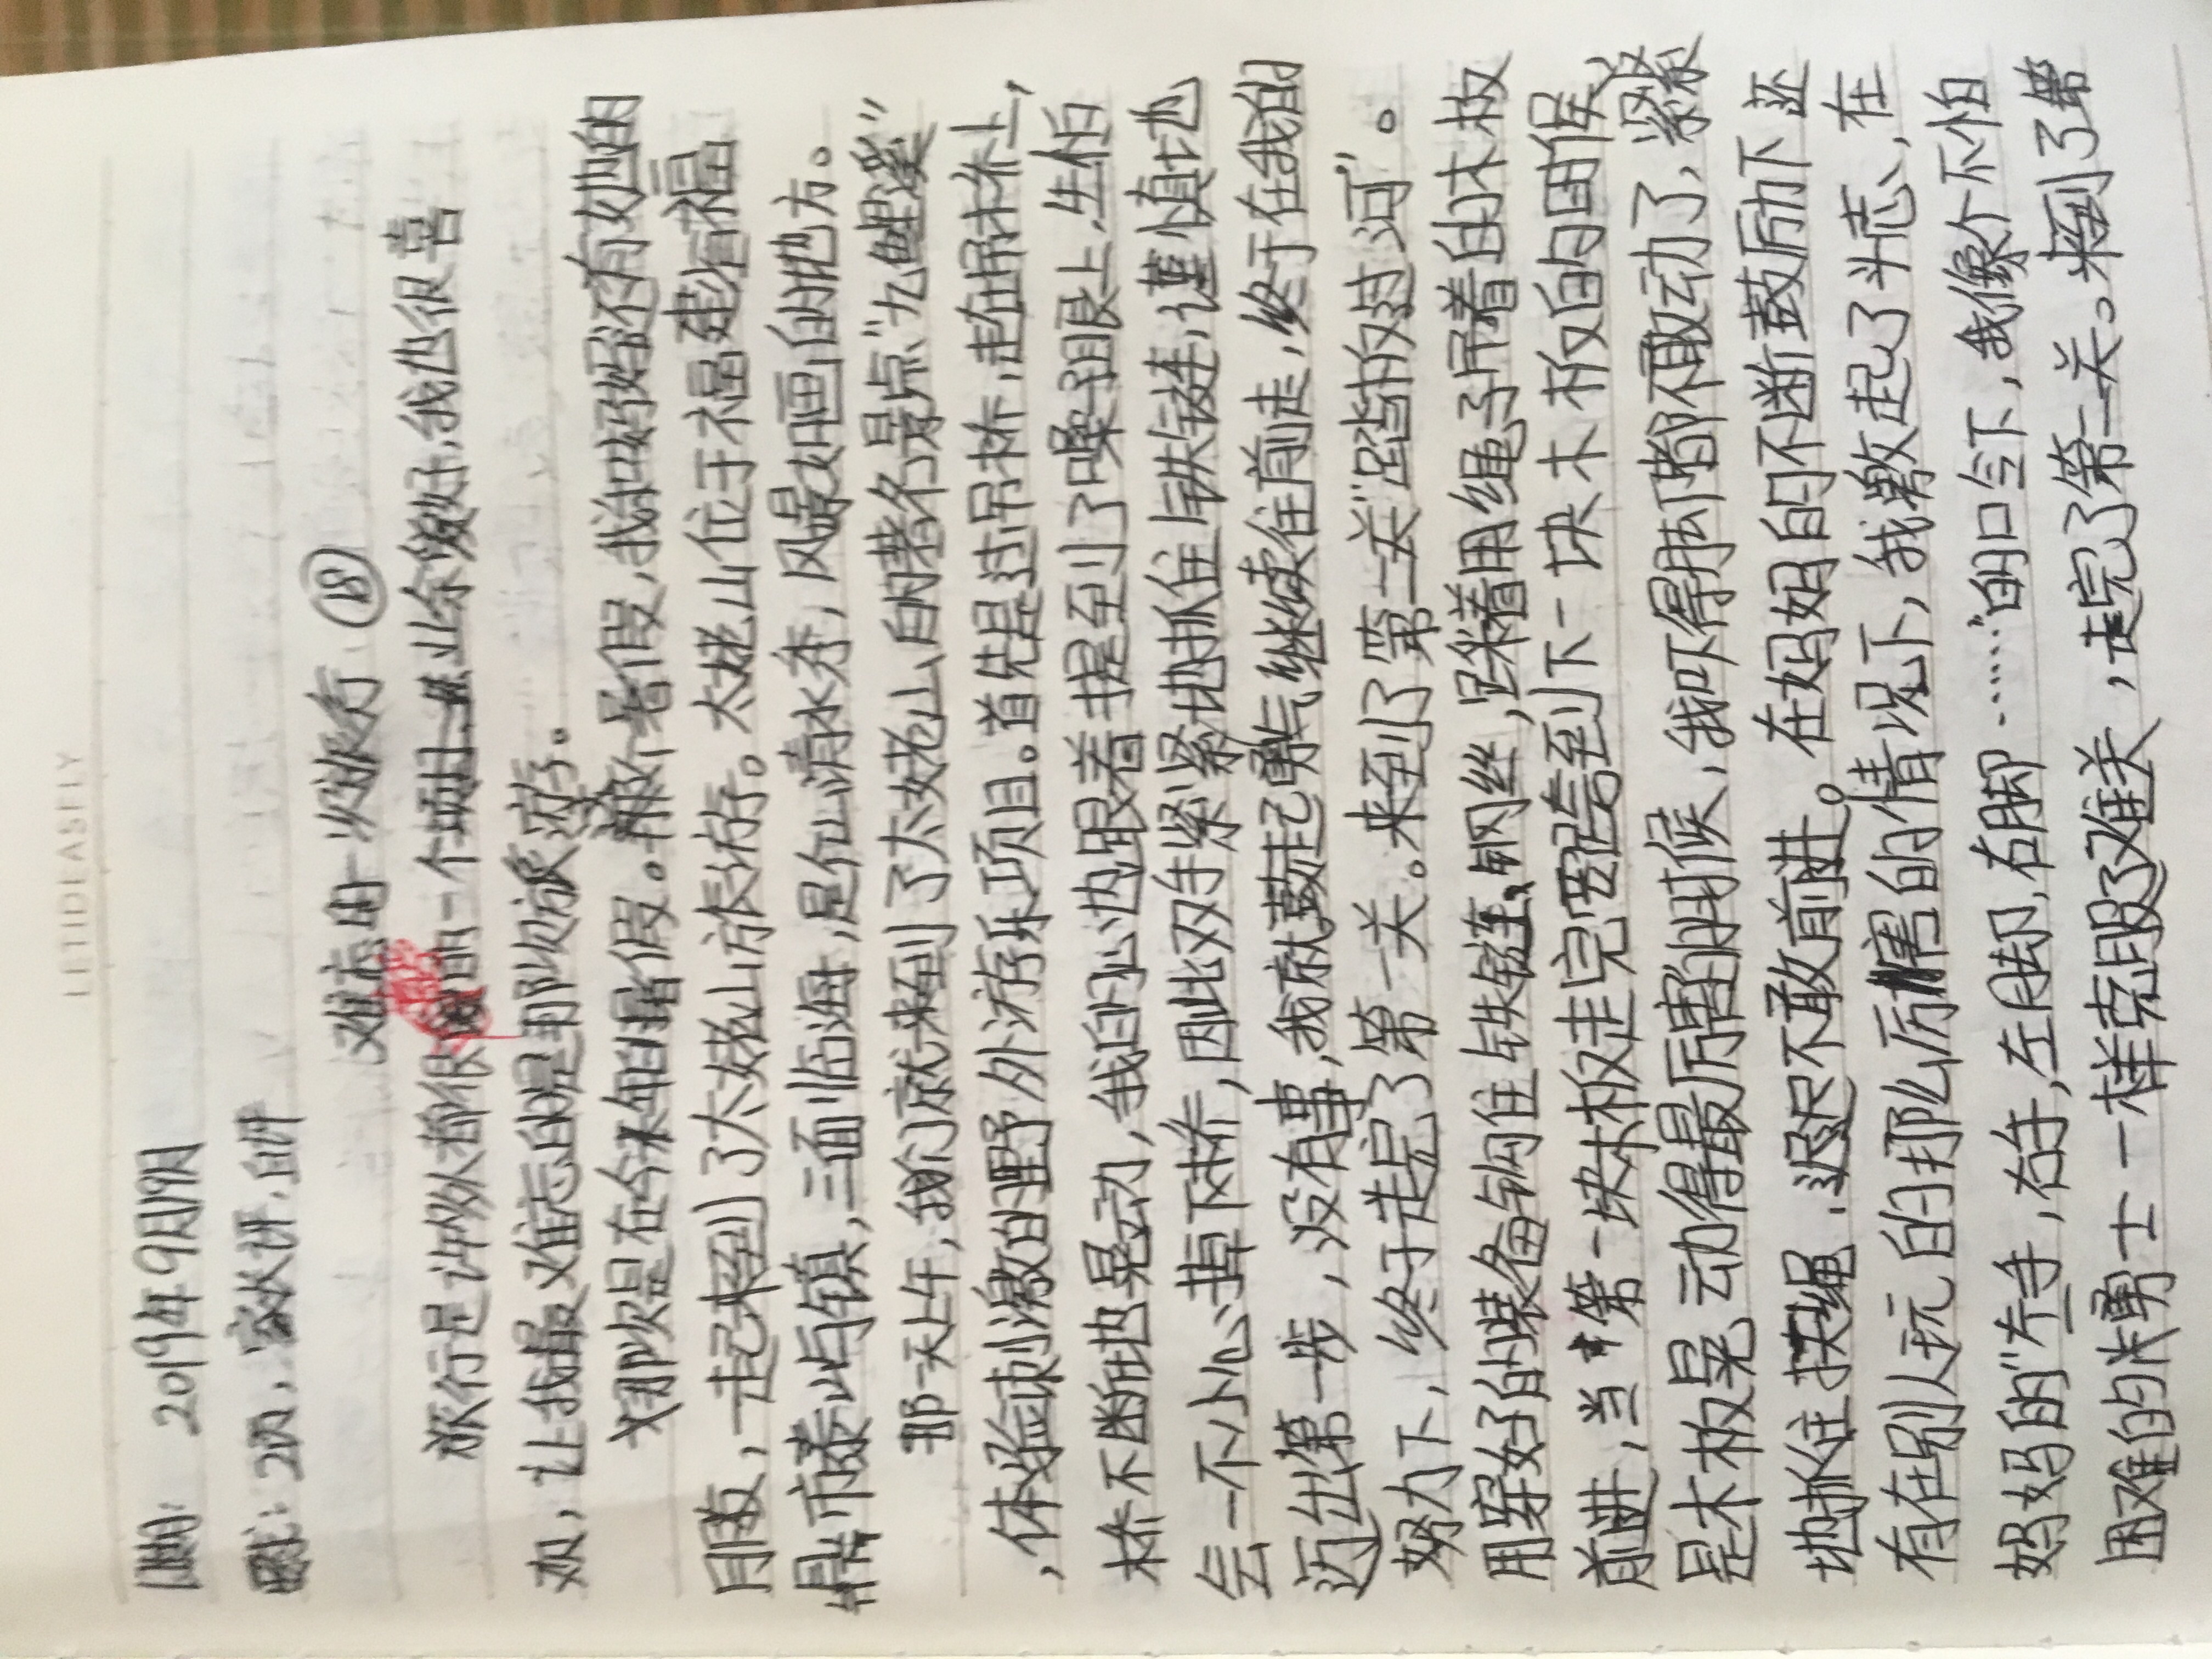 LETIDEASFLY
2019年9月19日
2页,家长评,自评
难忘的一次旅行 ⑱
旅行是许多人都很的一个项目业余爱好,我也很喜
欢,让我最难忘的是那次旅游了。
那次是在今年的暑假。那个暑假,我和妈妈还有她的
朋友,一起来到了太姥山旅游。太姥山位于福建省福
鼎市秦屿镇,三面临海,是个山清水秀,风景如画的地方。
那一天上午,我们就来到了太姥山的著名景点“九鲤溪”
,体验刺激的野外游乐项目。首先是过吊桥,走在吊桥上,
桥不断地晃动,我的心也跟着提到了嗓子眼上,生怕
会一不小心掉下桥,因此双手紧紧地抓住铁链,谨慎地
迈出第一步,没有事,我就鼓起勇气继续往前走,终于在我的
努力下,终于走完了第一关。来到了第二关“踏板过河”。
用穿好的装备钩住铁链、钢丝,踩着用绳子吊着的木板
前进,当第一块木板走完要跨到下一块木板的时候,
是木板晃动得最厉害的时候,我吓得脚都不敢动了,紧紧
地抓住绳,迟迟不敢前进。在妈妈的不断鼓励下还
有在别人玩的那么厉害的情况下,我激起了斗志,在
妈妈的“左手,右手,左脚,右脚……”的口令下,我像个不怕
困难的勇士一样克服了难关,走完了第二关。来到了第